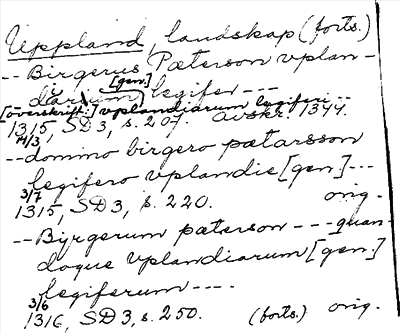 Uppland, landskap (forts.)
-- Birgerus Pæterson vplan-
[gen.]
diarum legifer ---
[överskrift:] vplandiarum legiferi --
1315, SD 3, s. 207. avskr. 1344.
14/3
-- domino birgero pætarsson
legifero vplandie [gen.] ---
3/7
1315, SD 3, s. 220. orig.
-- Byrgerum pæterson --- quan-
doque vplandiarum [gen.]
legiferum ----
3/6
1316, SD 3, s. 250. (forts.) orig.